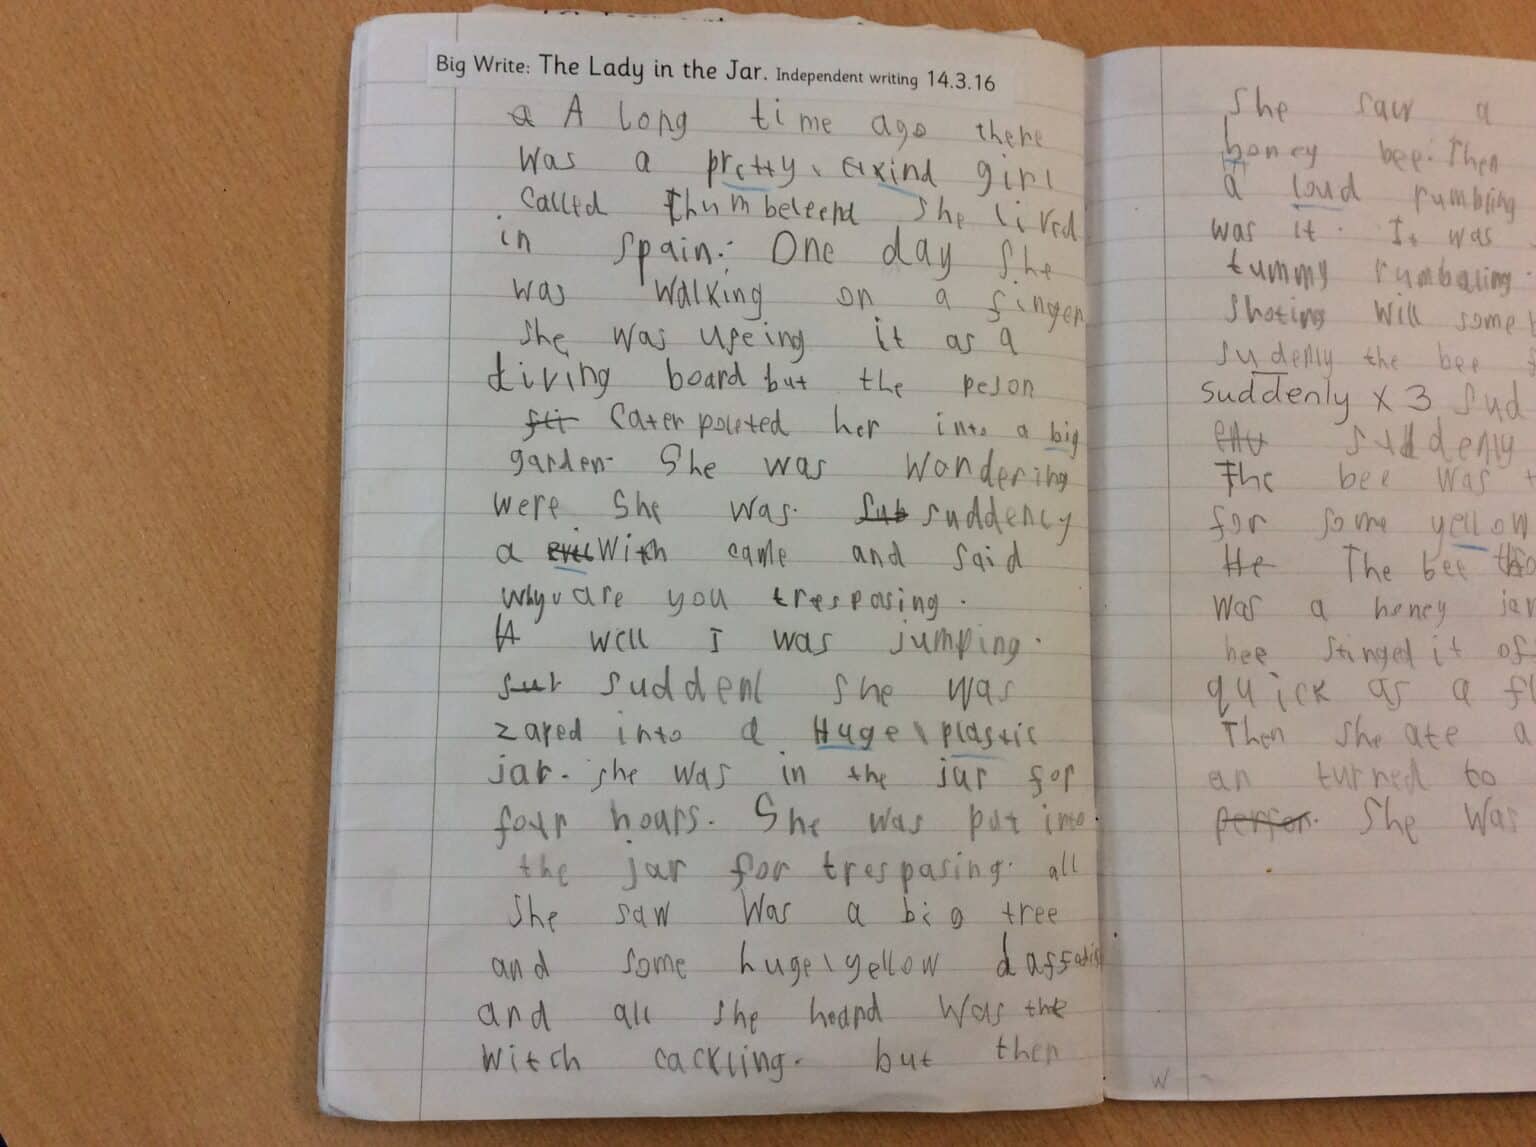 Big Write: The Lady in the Jar. Independent writing 14.3.16
a A long time ago there
was a pretty, kind girl
called thumbeleend she lived
in spain. One day she
was walking on a finger
she was useing it as a
diving board but the peson
caterpoleted her into a big
garden. She was wondering
were she was. sub suddency
a evil With came and said
why are you trespasing.
A well I was jumping.
sur suddenl she was
zaped into a Huge, plastic
jar. she was in the jar for
four hours. She was put into
the jar for trespasing. all
She saw Was a big tree
and some huge, yellow
and all she heard Was the
witch cackling. but then
She saw a
honey bee. Then
a loud rumbling
was it. It was
tummy rumbaling.
Shoting will some
sudenly the bee
suddenly x 3 sud
suddenly
The bee was
for some yellow
He The bee
was a honey jar
bee stinged it of
quick as a fl
Then she ate a
an turned to
person. She Was